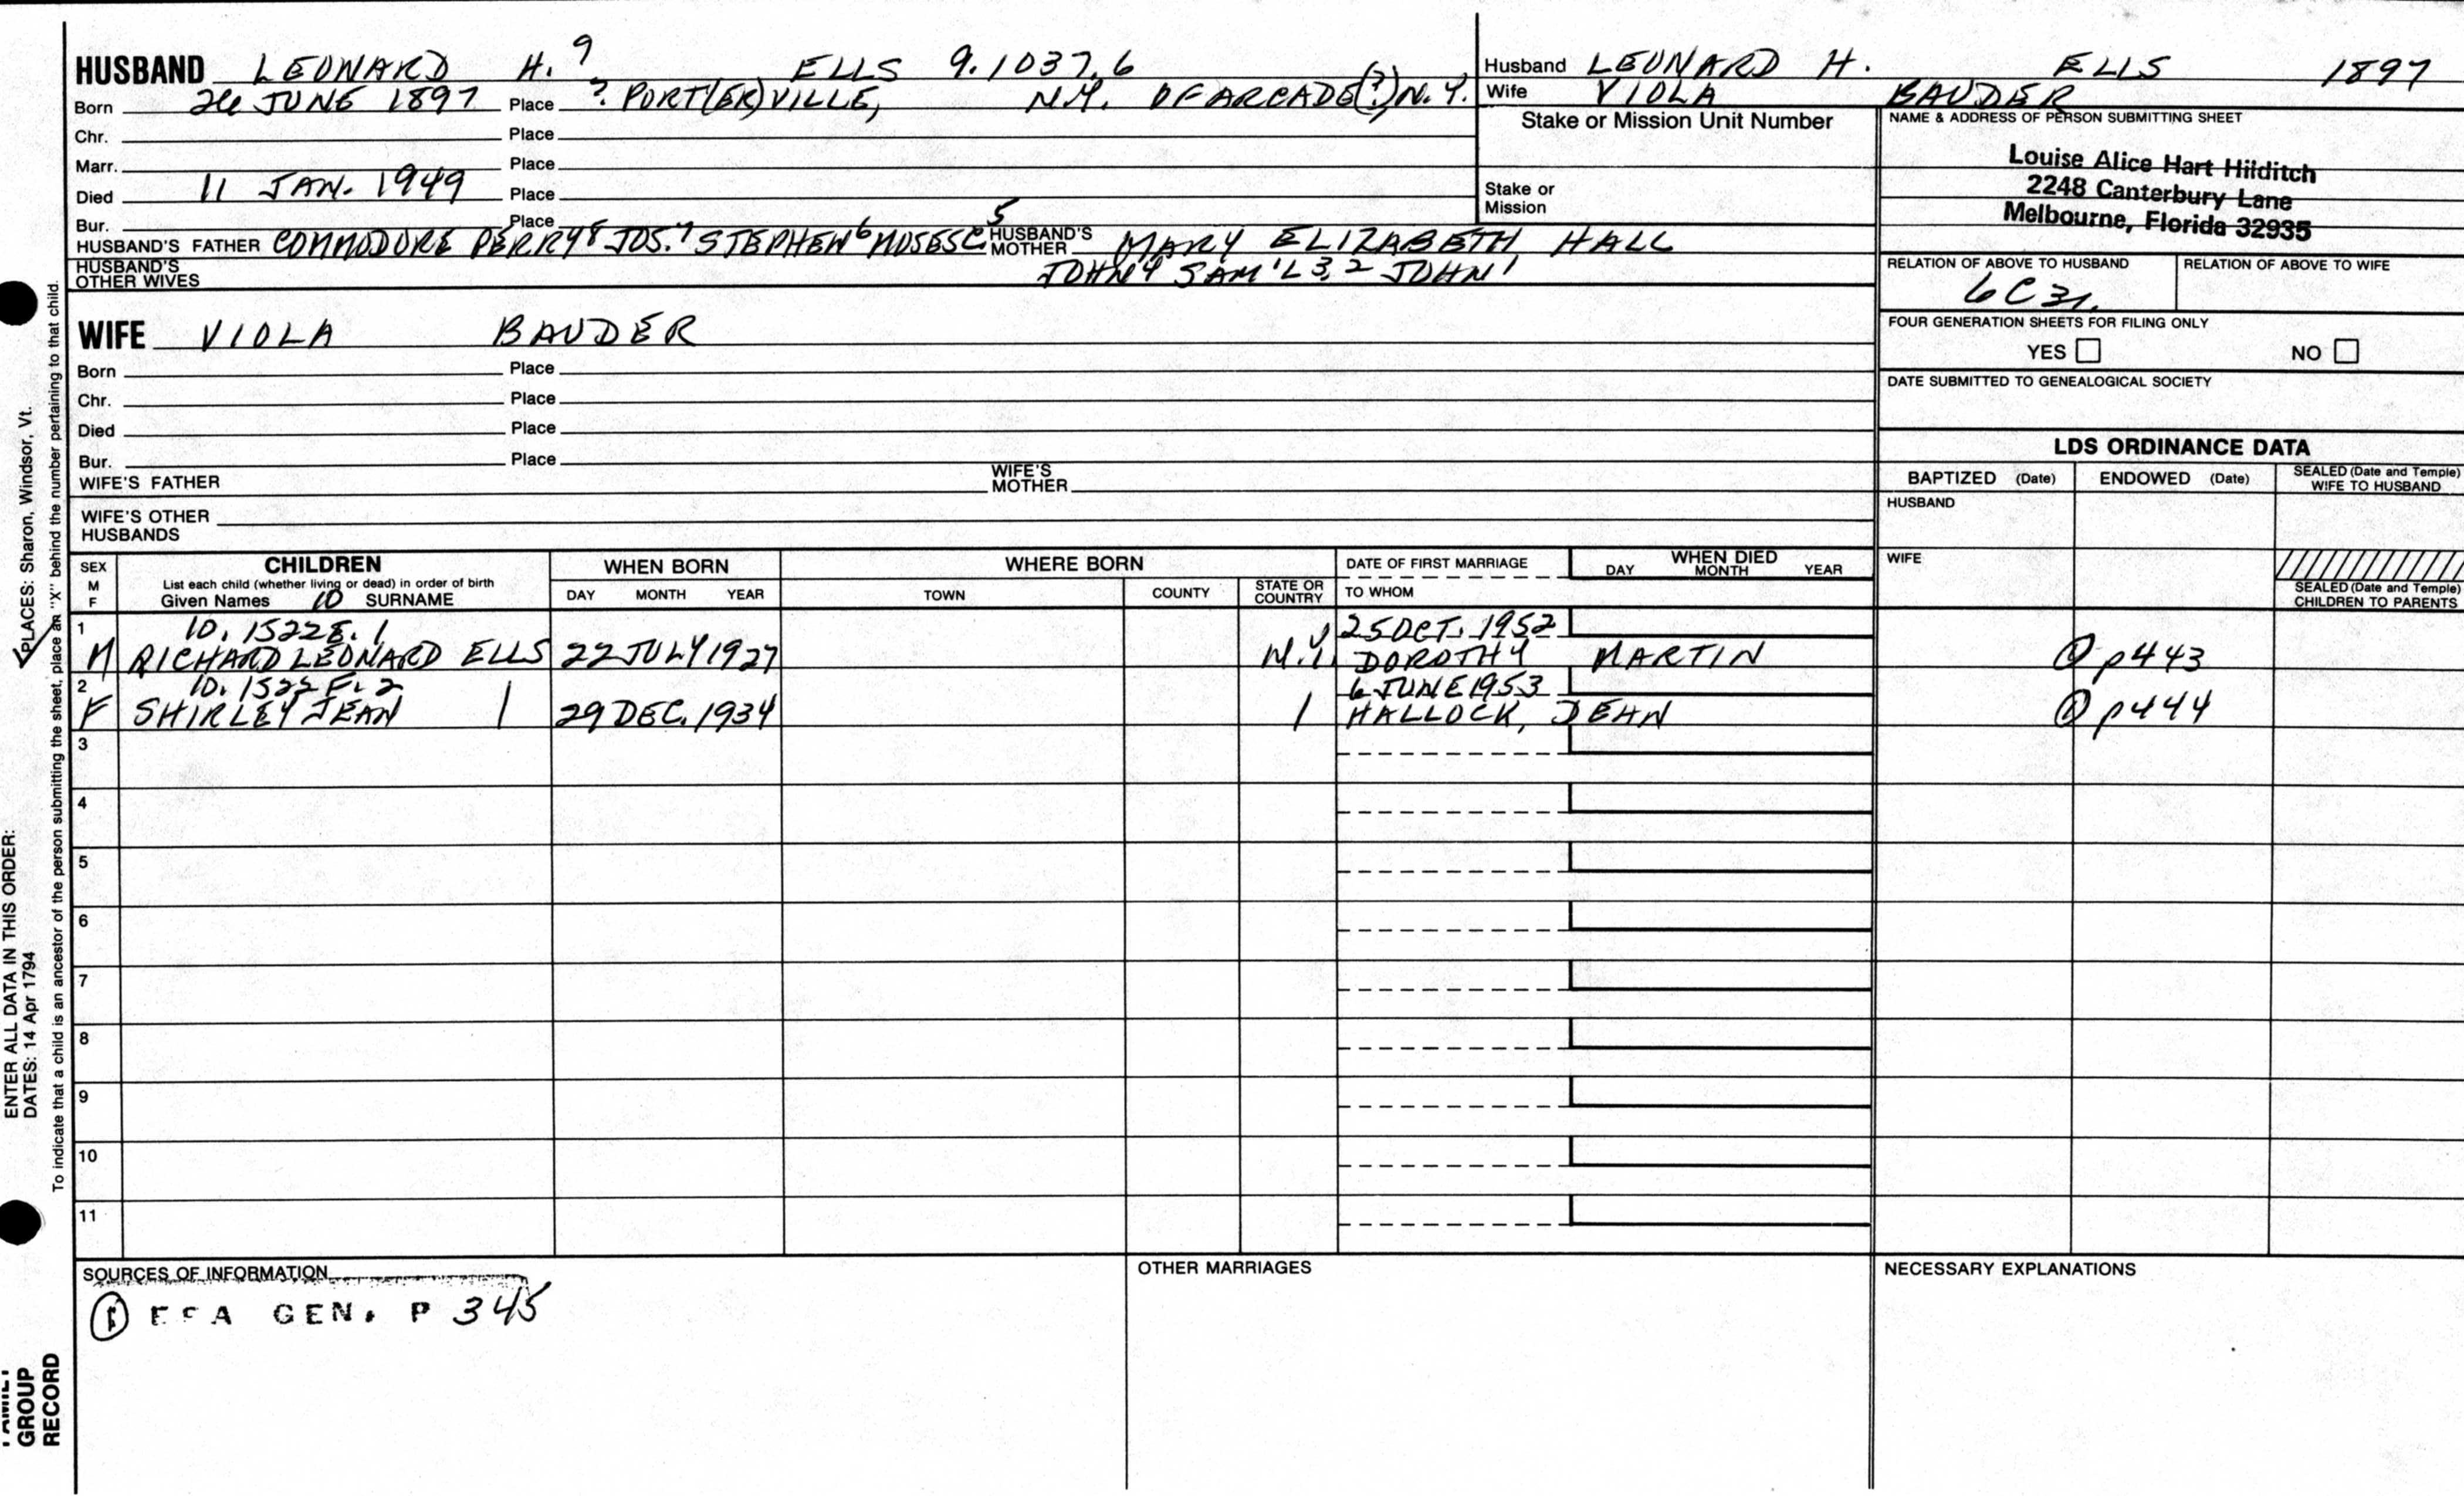 HUSBAND LEONARD H. 9 ELLS 9.1037.6
Born 26 JUNE 1897 Place ? PORT(ER)VILLE, N.Y. OF ARCADE(?), N.Y.
Chr. Place
Marr. Place
Died 11 JAN. 1949 Place
Bur. Place
HUSBAND'S FATHER COMMODORE PERRY8 JOS.7 STEPHEN6 MOSES C.5 HUSBAND'S MOTHER MARY ELIZABETH HALL
HUSBAND'S OTHER WIVES JOHN4 SAM'L 3,2 JOHN1
Husband LEONARD H. ELLS 1897
Wife VIOLA BAUDER
Stake or Mission Unit Number
Stake or Mission
NAME & ADDRESS OF PERSON SUBMITTING SHEET
Louise Alice Hart Hilditch
2248 Canterbury Lane
Melbourne, Florida 32935
RELATION OF ABOVE TO HUSBAND RELATION OF ABOVE TO WIFE
6C3r.
FOUR GENERATION SHEETS FOR FILING ONLY
YES NO
DATE SUBMITTED TO GENEALOGICAL SOCIETY
WIFE VIOLA BAUDER
Born Place
Chr. Place
Died Place
Bur. Place
WIFE'S FATHER WIFE'S MOTHER
WIFE'S OTHER HUSBANDS
LDS ORDINANCE DATA
BAPTIZED (Date) ENDOWED (Date) SEALED (Date and Temple) WIFE TO HUSBAND
HUSBAND
WIFE
SEALED (Date and Temple) CHILDREN TO PARENTS
SEX M F CHILDREN WHEN BORN WHERE BORN DATE OF FIRST MARRIAGE WHEN DIED
List each child (whether living or dead) in order of birth
Given Names 10 SURNAME DAY MONTH YEAR TOWN COUNTY STATE OR COUNTRY TO WHOM DAY MONTH YEAR
1 10.1522E.1 25 OCT. 1952
M RICHARD LEONARD ELLS 22 JULY 1927 N.Y. DOROTHY MARTIN p443
2 10.1522F.2 6 JUNE 1953
F SHIRLEY JEAN | 29 DEC. 1934 | HALLOCK, DEAN p444
3
4
5
6
7
8
9
10
11
SOURCES OF INFORMATION
GEN. P 345
OTHER MARRIAGES
NECESSARY EXPLANATIONS
ENTER ALL DATA IN THIS ORDER:
DATES: 14 Apr 1794 PLACES: Sharon, Windsor, Vt.
To indicate that a child is an ancestor of the person submitting the sheet, place an "X" behind the number pertaining to that child.
GROUP
RECORD